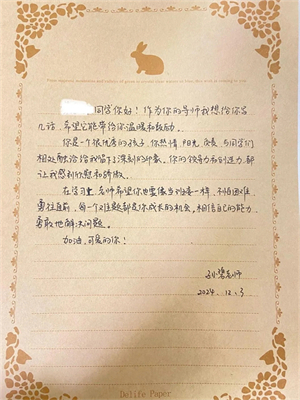 同学你好！作为你的导师我想给你写
几句话，希望它能带给你温暖和鼓励。
你是一个很优秀的孩子，你热情、阳光、
与同学们
相处融洽给我留下了深刻的印象。你的领导力和创造力都
让我感到欣慰和骄傲。
在学习里，老师希望你也要像当对
一样，不怕困难
勇往直前，每一个难题都是你成长的机会，相信自己的能力
勇敢地解决问题。
加油，可爱的你！
老师
2024.12.3
Delife Paper